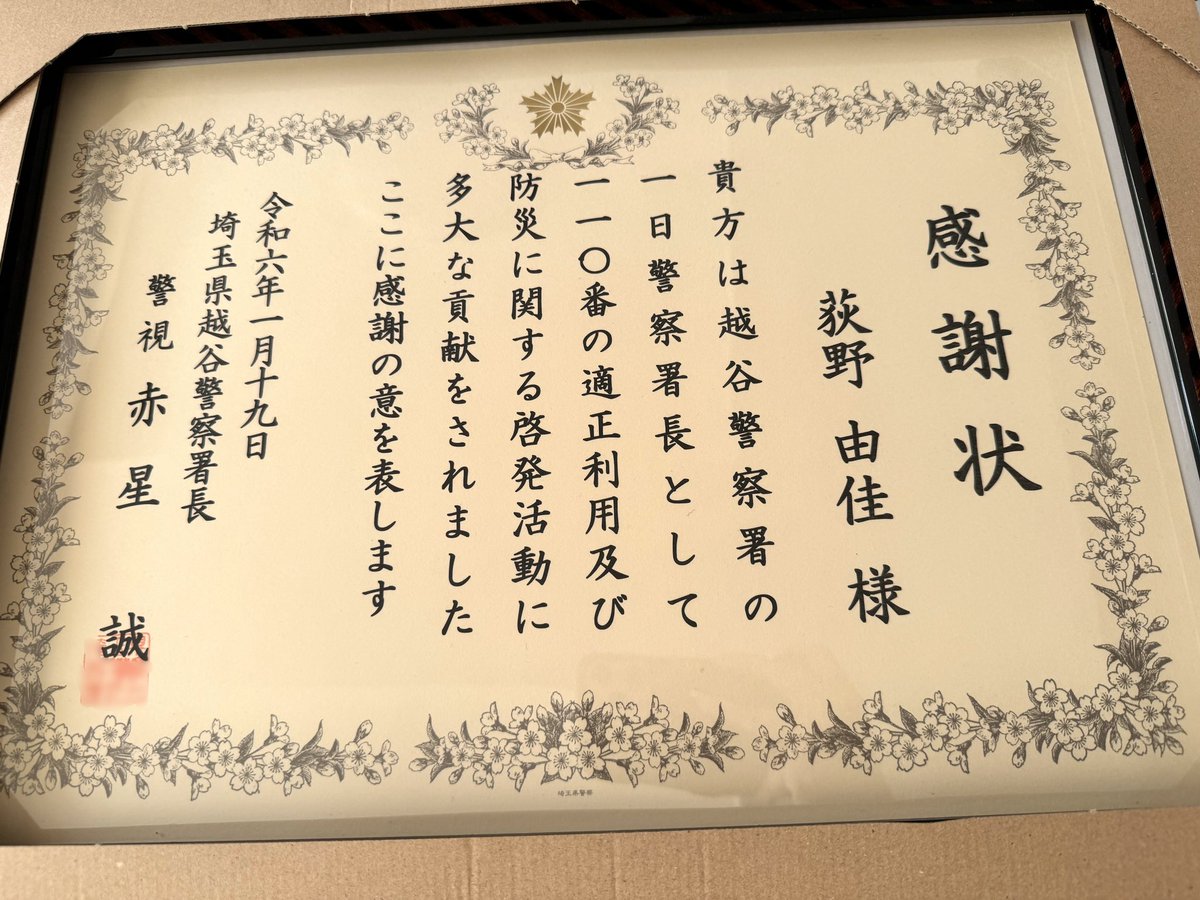 感謝状
荻野由佳様
貴方は越谷警察署の
一日警察署長として
一一〇番の適正利用及び
防災に関する啓発活動に
多大な貢献をされました
ここに感謝の意を表します
令和六年一月十九日
埼玉県越谷警察署長
警視赤星誠
埼玉県警察